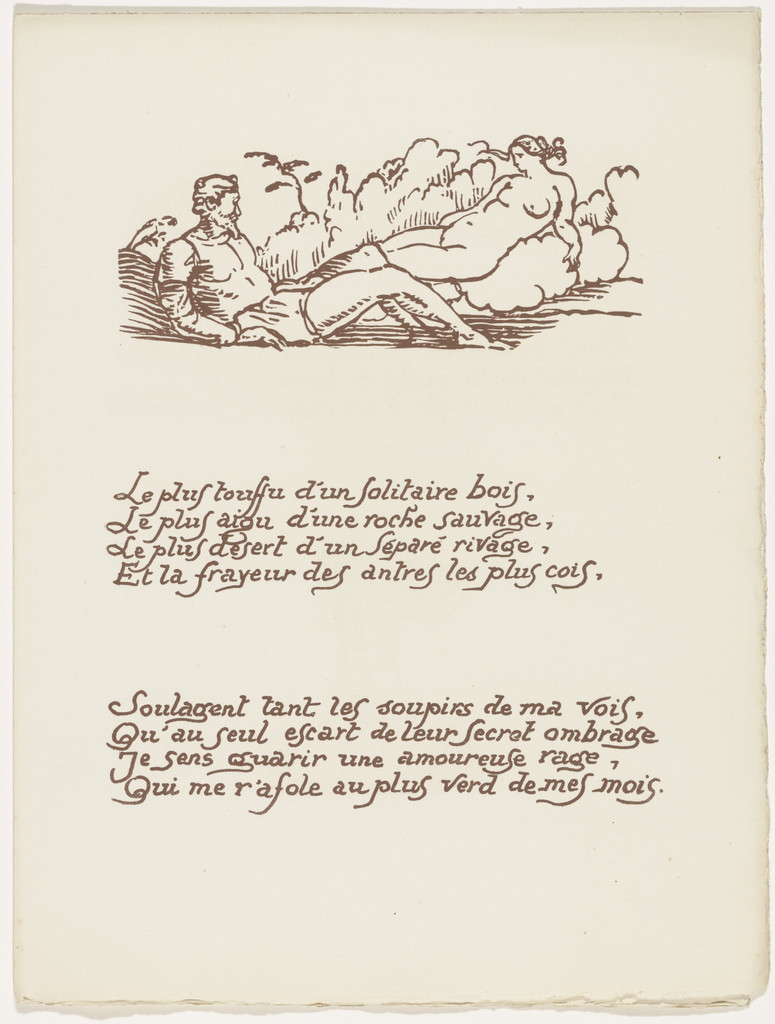 Le plus touffu d'un solitaire bois,
Le plus aigu d'une roche sauvage,
Le plus desert d'un séparé rivage,
Et la frayeur des antres les plus cois,
Soulagent tant les soupirs de ma vois,
Qu'au seul escart de leur secret ombrage
Je sens guarir une amoureuse rage,
Qui me r'afole au plus verd de mes mois.